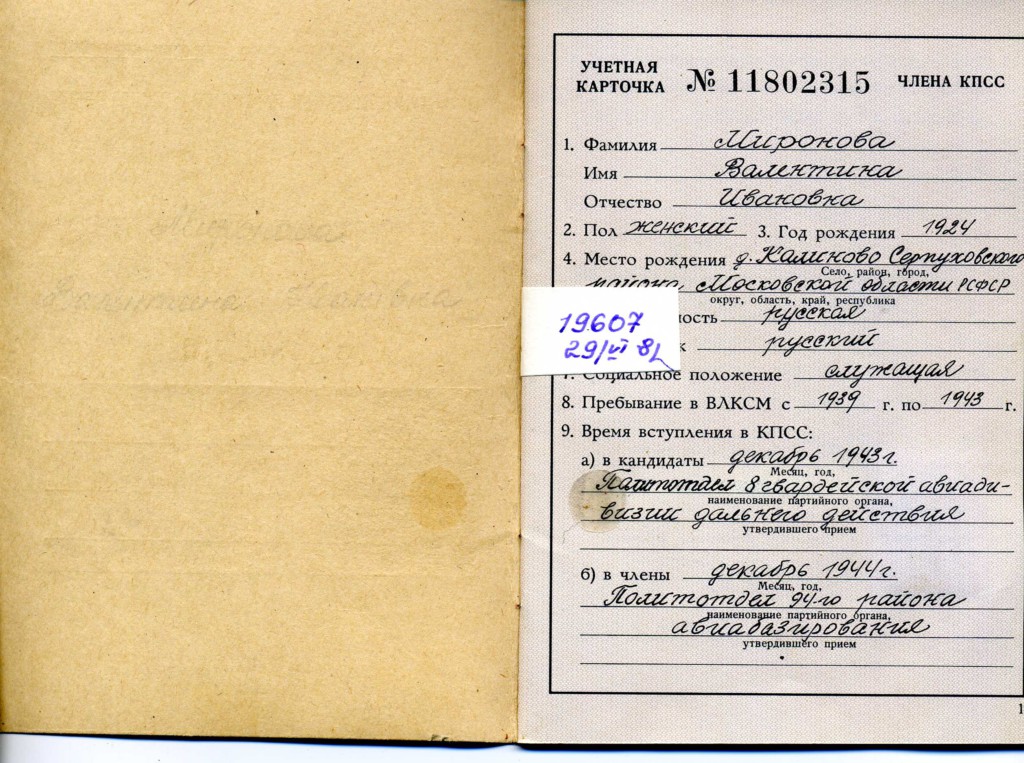 Миронова
Валентина Ивановна
УЧЕТНАЯ
КАРТОЧКА № 11802315 ЧЛЕНА КПСС
1. Фамилия Миронова
Имя Валентина
Отчество Ивановна
2. Пол женский 3. Год рождения 1924
4. Место рождения д. Калиново Серпуховского
Село, район, город,
района Московской области РСФСР
округ, область, край, республика
ность русская
к русский
7. Социальное положение служащая
8. Пребывание в ВЛКСМ с 1939 г. по 1943 г.
9. Время вступления в КПСС:
а) в кандидаты декабрь 1943г.
Месяц, год,
Политотдел 8 гвардейской авиади-
наименование партийного органа,
визии дальнего действия
утвердившего прием
б) в члены декабрь 1944г.
Месяц, год,
Политотдел 94-го района
наименование партийного органа,
авиабазирования
утвердившего прием
19607
29/VI
1